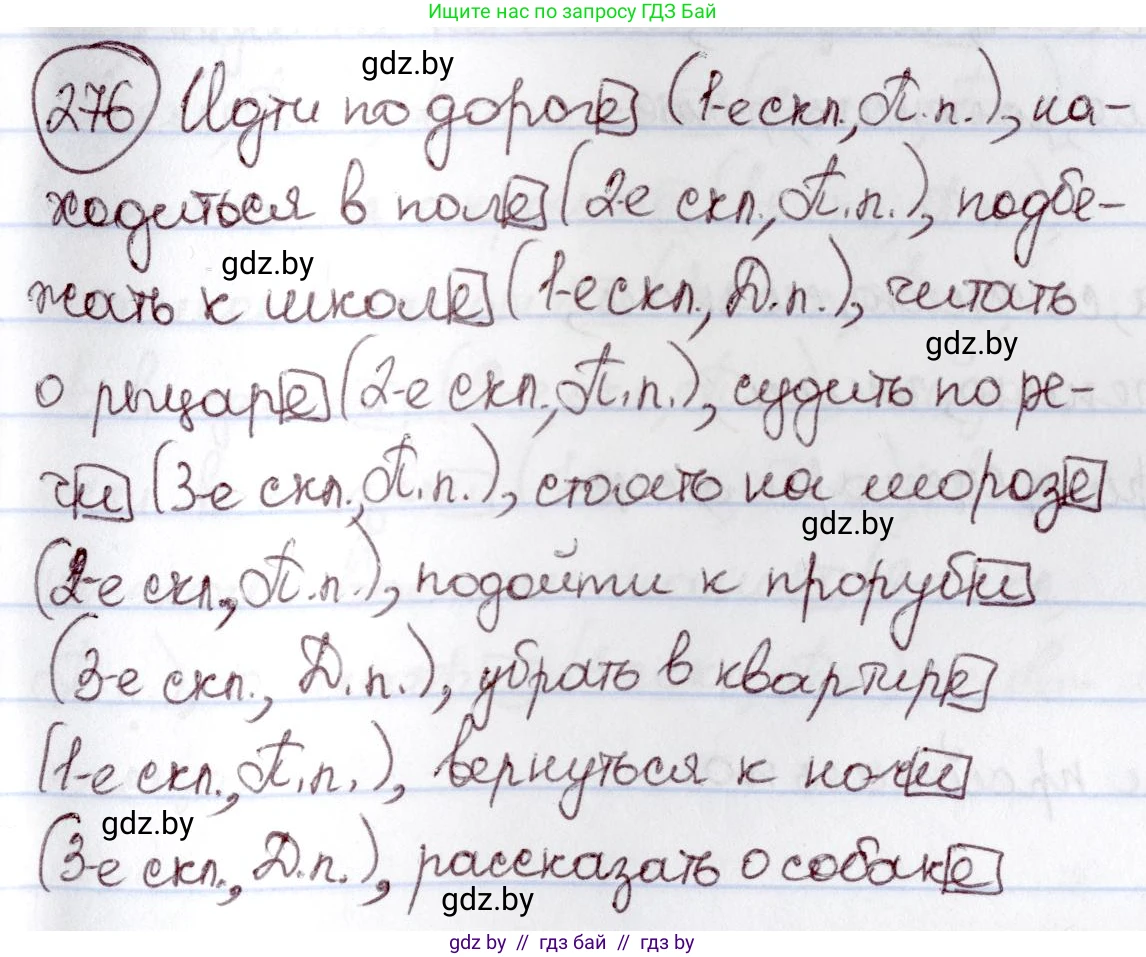 Ищите нас по запросу ГДЗ Бай
gdz.by
276 Идти по дороге (1-е скл., П.п.), на-
ходиться в поле (2-е скл., П.п.), подбе-
gdz.by
жать к школе (1-е скл., Д.п.), читать
gdz.by
о рыцаре (2-е скл., П.п.), судить по ре-
чи (3-е скл., П.п.), стоять на морозе
gdz.by
(2-е скл., П.п.), подойти к проруби
(3-е скл., Д.п.), убрать в квартире
(1-е скл., П.п.), вернуться к ночи
gdz.by
(3-е скл., Д.п.), рассказать о собаке
gdz.by
gdz by // гдз бай // гдз by